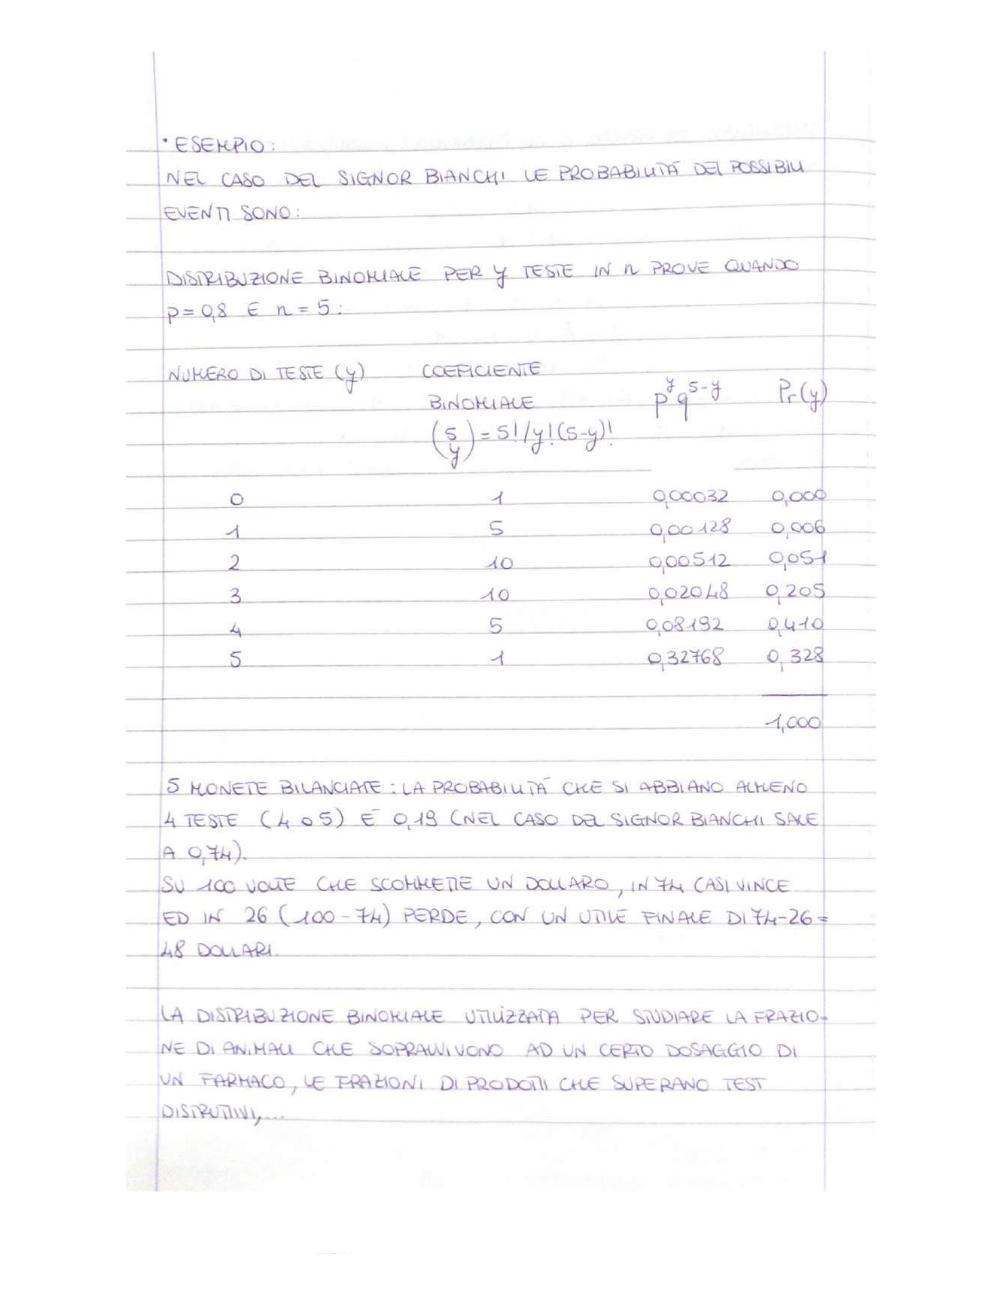 • ESEMPIO:
NEL CASO DEL SIGNOR BIANCHI LE PROBABILITÁ DEI POSSIBILI
EVENTI SONO:
DISTRIBUZIONE BINOMIALE PER y TESTE IN n PROVE QUANDO
p = 0,8 E n = 5:
NUMERO DI TESTE (y) COEFICIENTE BINOMIALE (5 y) = 5!/y!(5-y)! p^y q^5-y Pr(y)
0 1 0,00032 0,000
1 5 0,00128 0,006
2 10 0,00512 0,051
3 10 0,02048 0,205
4 5 0,08192 0,410
5 1 0,32768 0,328
1,000
5 MONETE BILANCIATE: LA PROBABILITÁ CHE SI ABBIANO ALMENO
4 TESTE (4 o 5) É 0,19 (NEL CASO DEL SIGNOR BIANCHI SALE
A 0,74).
SU 100 VOLTE CHE SCOMMETTE UN DOLLARO, IN 74 CASI VINCE
ED IN 26 (100-74) PERDE, CON UN UTILE FINALE DI 74-26=
48 DOLLARI.
LA DISTRIBUZIONE BINOMIALE UTILIZZATA PER STUDIARE LA FRAZIO-
NE DI ANIMALI CHE SOPRAVVIVONO AD UN CERTO DOSAGGIO DI
UN FARMACO, LE FRAZIONI DI PRODOTTI CHE SUPERANO TEST
DISTRUTTIVI,...